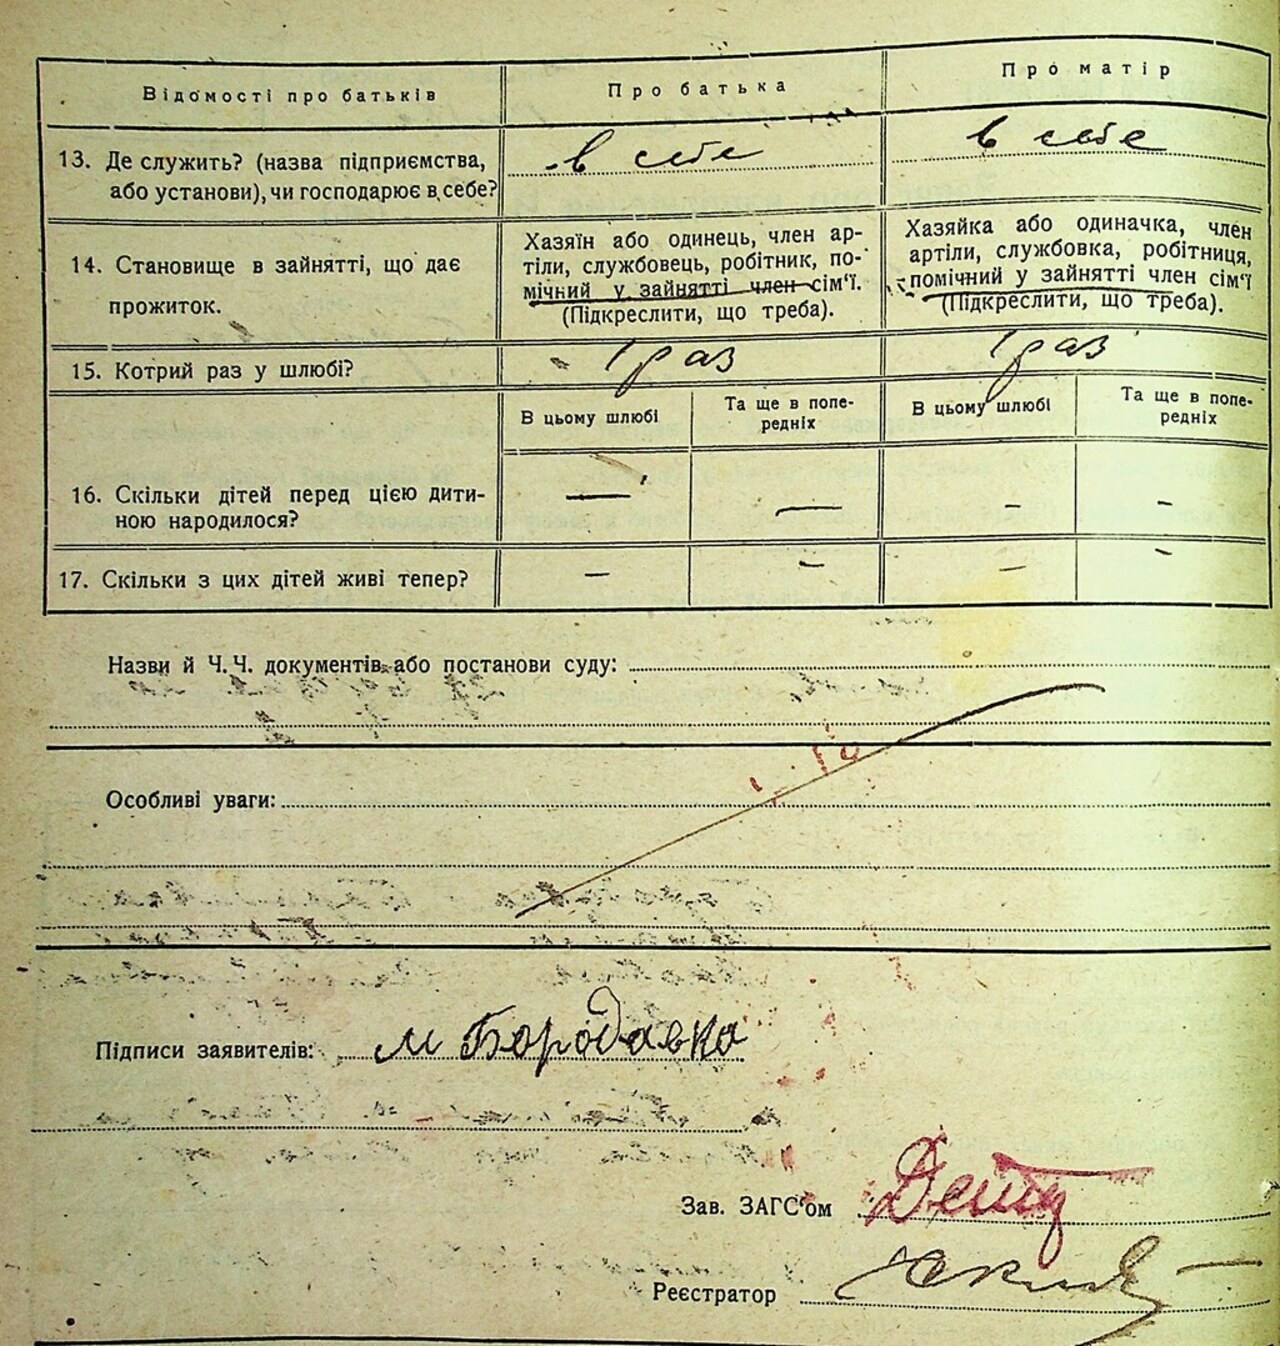 Відомості про батьків
Про батька
Про матір
13. Де служить? (назва підприємства, або установи), чи господарює в себе?
в себе
в себе
14. Становище в зайнятті, що дає прожиток.
Хазяїн або одинець, член ар-
тіли, службовець, робітник, по-
мічний у зайнятті член сім'ї.
(Підкреслити, що треба).
Хазяйка або одиначка, член
артіли, службовка, робітниця,
помічний у зайнятті член сім'ї
(Підкреслити, що треба).
15. Котрий раз у шлюбі?
1 раз
1 раз
В цьому шлюбі
Та ще в попе-
редніх
В цьому шлюбі
Та ще в попе-
редніх
16. Скільки дітей перед цією дити-
ною народилося?
— — – –
17. Скільки з цих дітей живі тепер?
– – – –
Назви й Ч.Ч. документів або постанови суду:
Особливі уваги:
Підписи заявителів: М Бородавка
Зав. ЗАГС'ом
Реєстратор